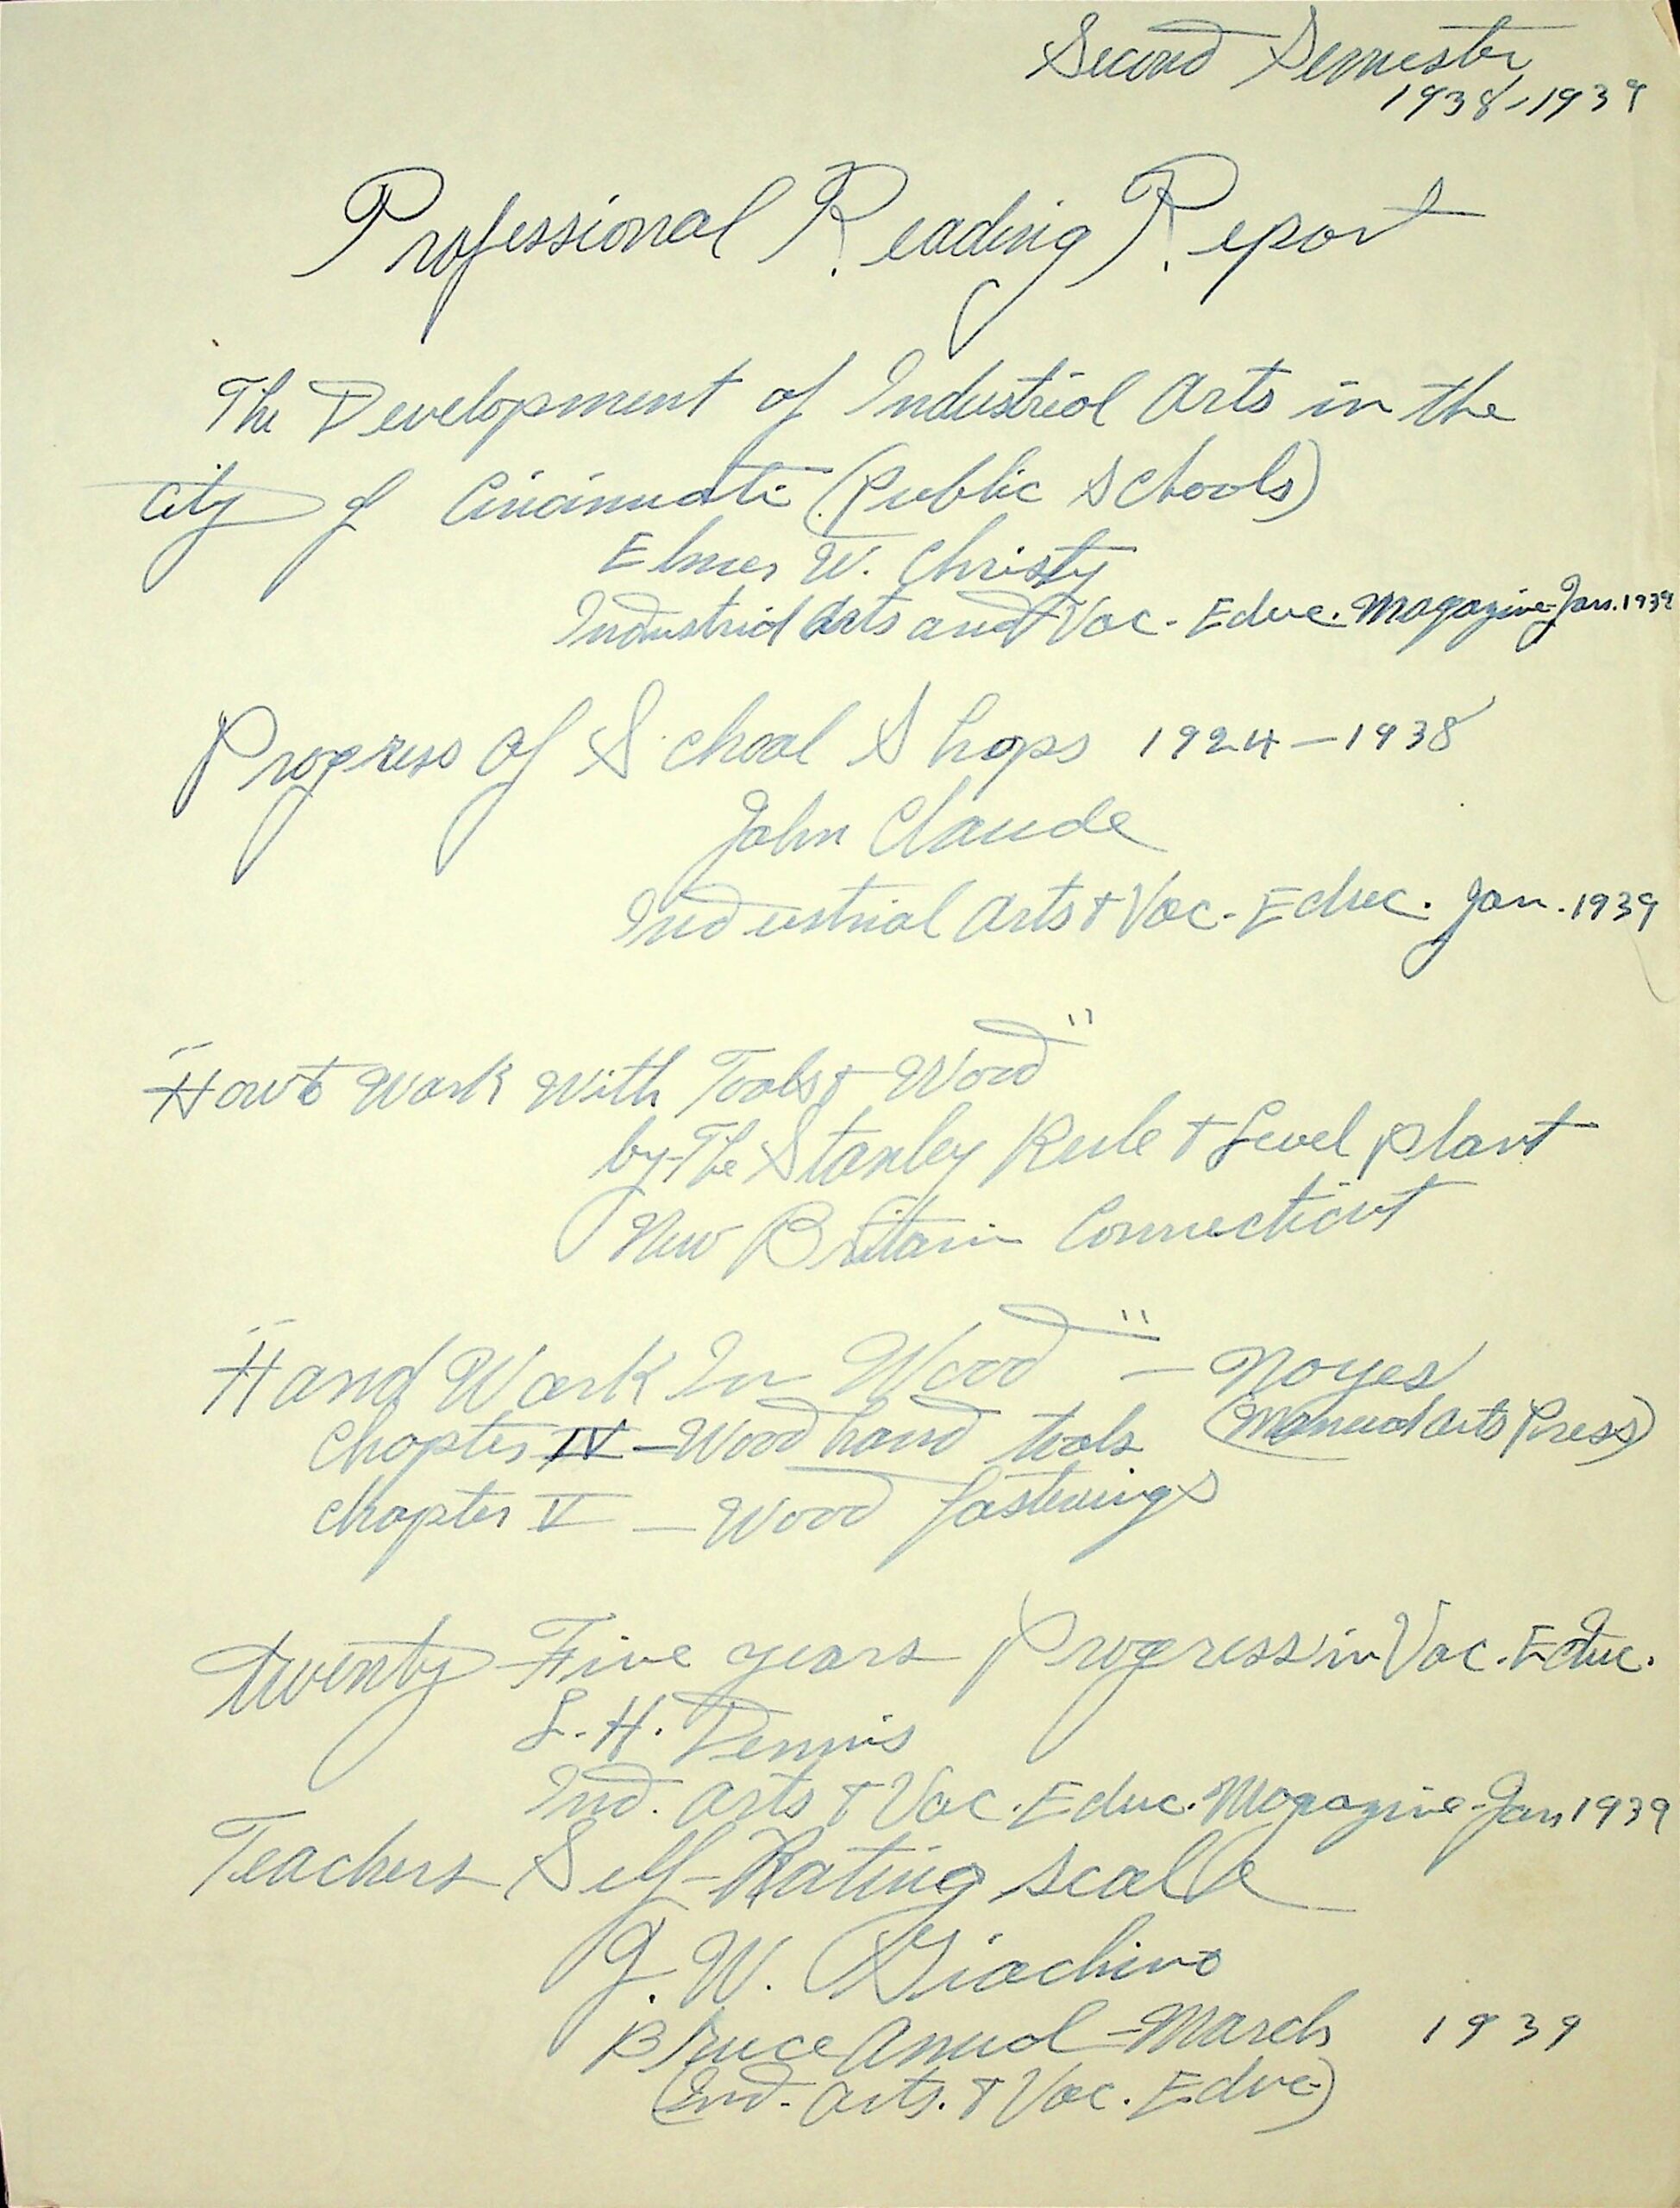 Second Semester
1938-1939
Professional Reading Report
The Development of Industrial Arts in the
City of Cincinnati (Public Schools)
Elmer W. Christy
Industrial Arts and Voc. Educ. Magazine-Jan. 1939
Progress of School Shops 1924-1938
John Claude
Industrial Arts & Voc. Educ. Jan. 1939
"How to Work With Tools & Wood"
by-The Stanley Rule & Level plant
New Britain Connecticut
"Hand Work In Wood" - Noyes
Chapter IV - Wood hand tools (Manual Arts Press)
Chapter V - Wood fastenings
Twenty Five years Progress in Voc. Educ.
L. H. Dennis
Ind. Arts & Voc. Educ. Magazine-Jan 1939
Teachers Self-Rating scale
J. W. Giachino
Bruce Annual - March 1939
(Ind. Arts. & Voc. Educ.)